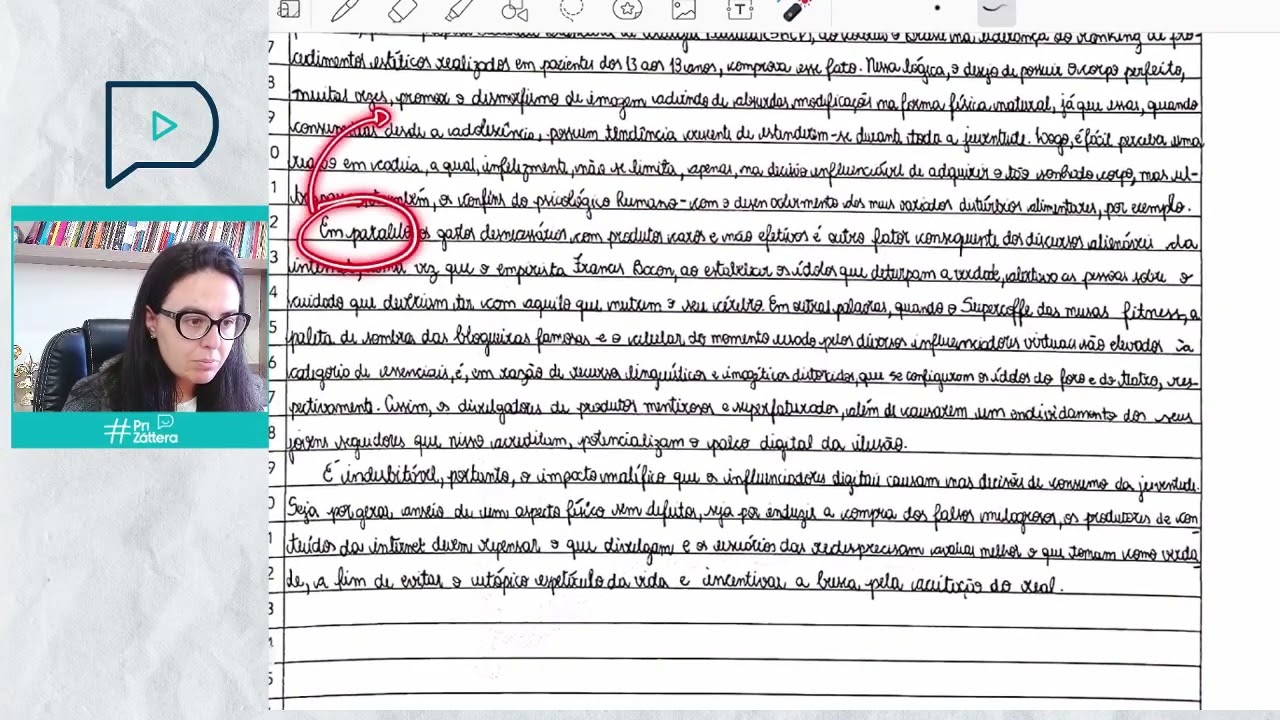 cedimentos estéticos realizados em pacientes dos 13 aos 19 anos, comprova esse fato. Nessa lógica, o desejo de possuir o corpo perfeito,
muitas vezes, promove o dismorfismo de imagem advindo de absurdas modificações na forma física natural, já que essas, quando
consumidas desde a adolescência, possuem tendência crescente de estenderem-se durante toda a juventude. Logo, é fácil perceber uma
reação em cadeia, a qual, infelizmente, não se limita, apenas, na decisão influenciável de adquirir o tão sonhado corpo, mas ul-
também, os confins do psicológico humano - com o desenvolvimento dos mais variados distúrbios alimentares, por exemplo.
Em paralelo, os gastos desnecessários com produtos caros e não efetivos é outro fator consequente dos discursos alienáveis da
internet, uma vez que o empirista Francis Bacon, ao estabelecer os ídolos que deturpam a verdade, alertava as pessoas sobre o
cuidado que deveriam ter com aquilo que nutrem o seu cérebro. Em outras palavras, quando o Supercoffe das musas fitness, a
paleta de sombra das blogueiras famosas e o celular do momento usado pelos diversos influenciadores virtuais são elevados à
categoria de essenciais, é, em razão de recursos linguísticos e imagéticos distorcidos, que se configuram os ídolos do foro e do teatro, res-
pectivamente. Assim, os divulgadores de produtos mentirosos e superfaturados, além de causarem um endividamento dos seus
jovens seguidores que nisso acreditam, potencializam o palco digital da ilusão.
É indubitável, portanto, o impacto maléfico que os influenciadores digitais causam nas decisões de consumo da juventude.
Seja por gerar anseio de um aspecto físico sem defeitos, seja por induzir a compra dos falsos milagrosos, os produtores de con-
teúdos da internet devem repensar o que divulgam e os usuários das redes precisam avaliar melhor o que tomam como verda-
de, a fim de evitar o utópico espetáculo da vida e incentivar a busca pela aceitação do real.
#Pri
Záttera